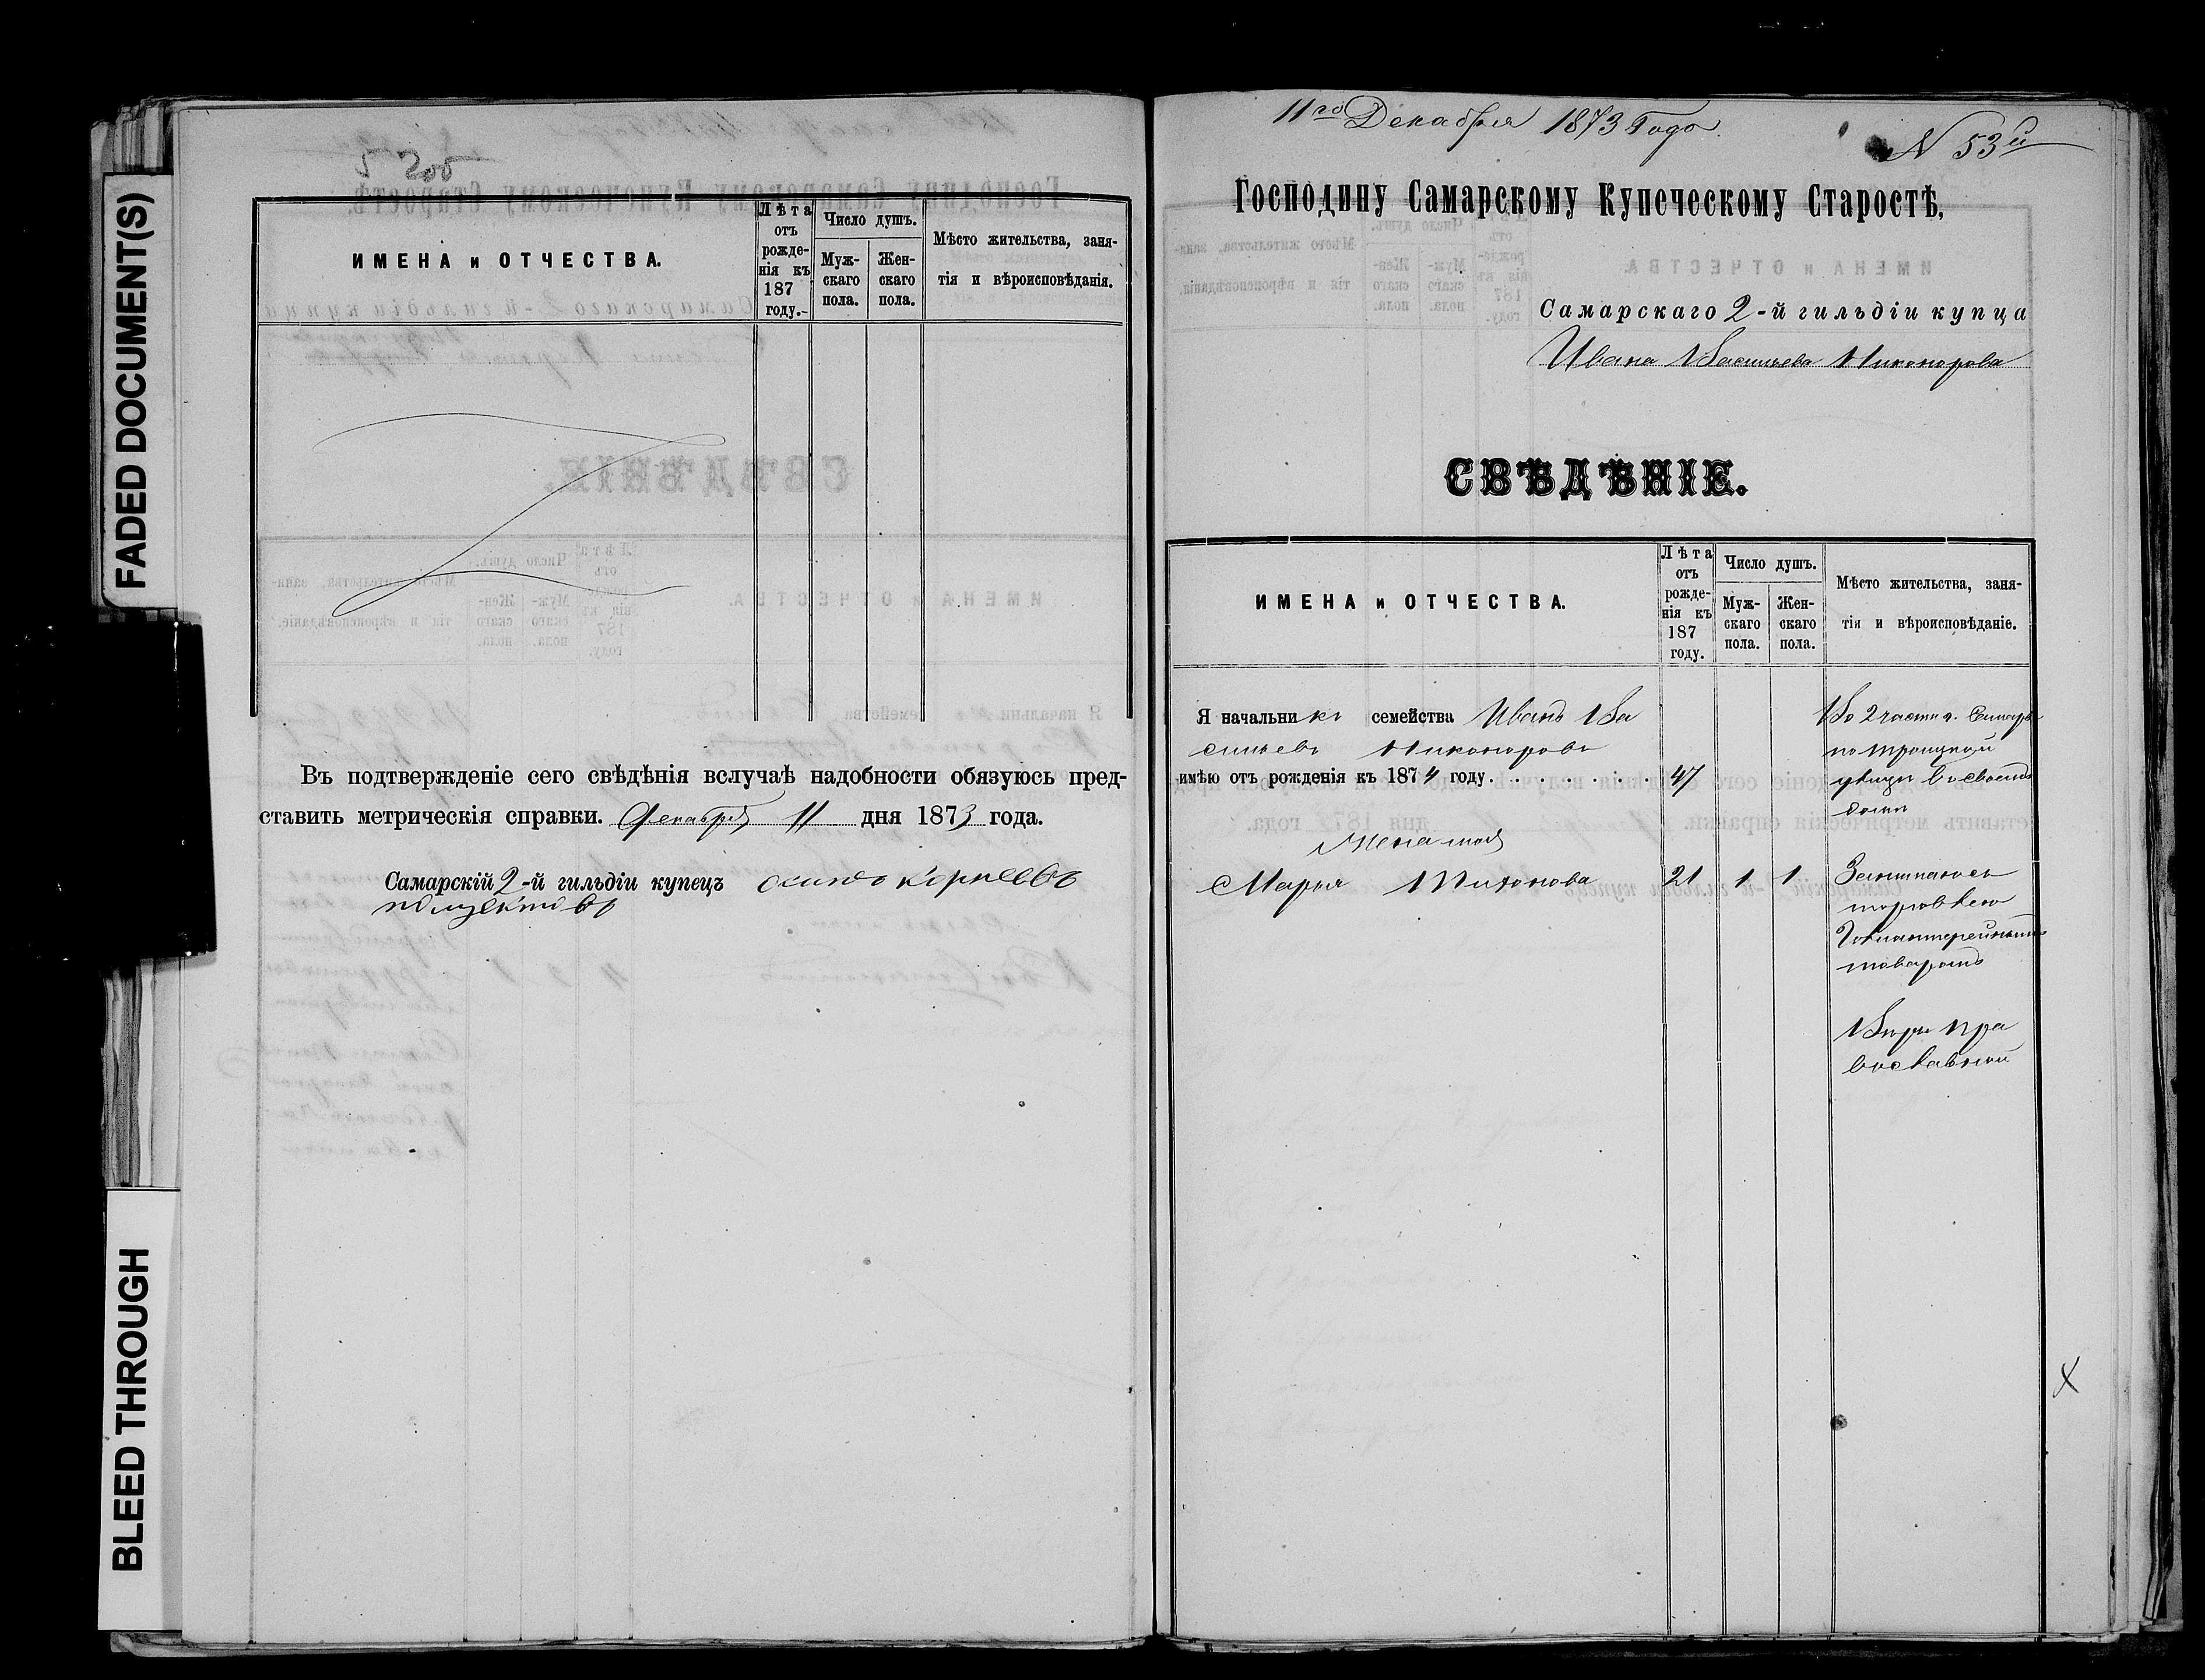 FADED DOCUMENT(S)
BLEED THROUGH
205
ИМЕНА и ОТЧЕСТВА.
Лѣта отъ рожде-нія къ 187 году.-
Число душъ.
Муж-скаго пола.
Жен-скаго пола.
Мѣсто жительства, заня-
тія и вѣроисповѣданія.
Въ подтвержденіе сего свѣдѣнія вслучаѣ надобности обязуюсь пред-
ставить метрическія справки. Декабря 11 дня 1873 года.
Самарскій 2-й гильдіи купецъ корнеевъ
11го Декабря 1873 Года.
N 53й
Господину Самарскому Купеческому Старостѣ,
Самарскаго 2-й гильдіи купца
Ивана Васильева Никонорова
СВѢДѢНІЕ.
ИМЕНА и ОТЧЕСТВА.
Лѣта отъ рожде-нія къ 187 году.
Число душъ.
Муж-скаго пола.
Жен-скаго пола.
Мѣсто жительства, заня-
тія и вѣроисповѣданіе.
Я начальникъ семейства Иванъ Ва
сильевъ Никоноровъ
имѣю отъ рожденія къ 1874 году. . . . . . . . 47
Жена моя
Марья Тихонова 21 1 1
Во 2 части г. Самары
по троицкой
улицы в своемъ
доми
Занимаюсь
торговлею
Галантерейнымъ
товаромъ
Виры пра
вославной
X